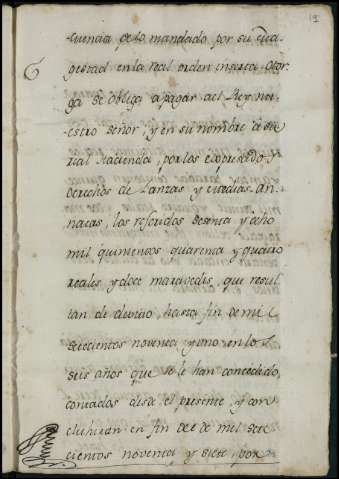 19
cuencia de lo mandado por su Ma
gestad en la real orden inserta otor
ga se obliga a pagar al Rey nu
estro señor, y en su nombre a su
real Hacienda, por los expresados
derechos de Lanzas y medias an
natas, los referidos setenta y ocho
mil quinientos quarenta y quatro
reales y doce maravedis, que resul
tan de devito, hasta fin de mil
setecientos noventa y uno en los
seis años que se le han concedido,
contados desde el presente y con
cluhiran en fin de el de mil sete
cientos noventa y siete, por